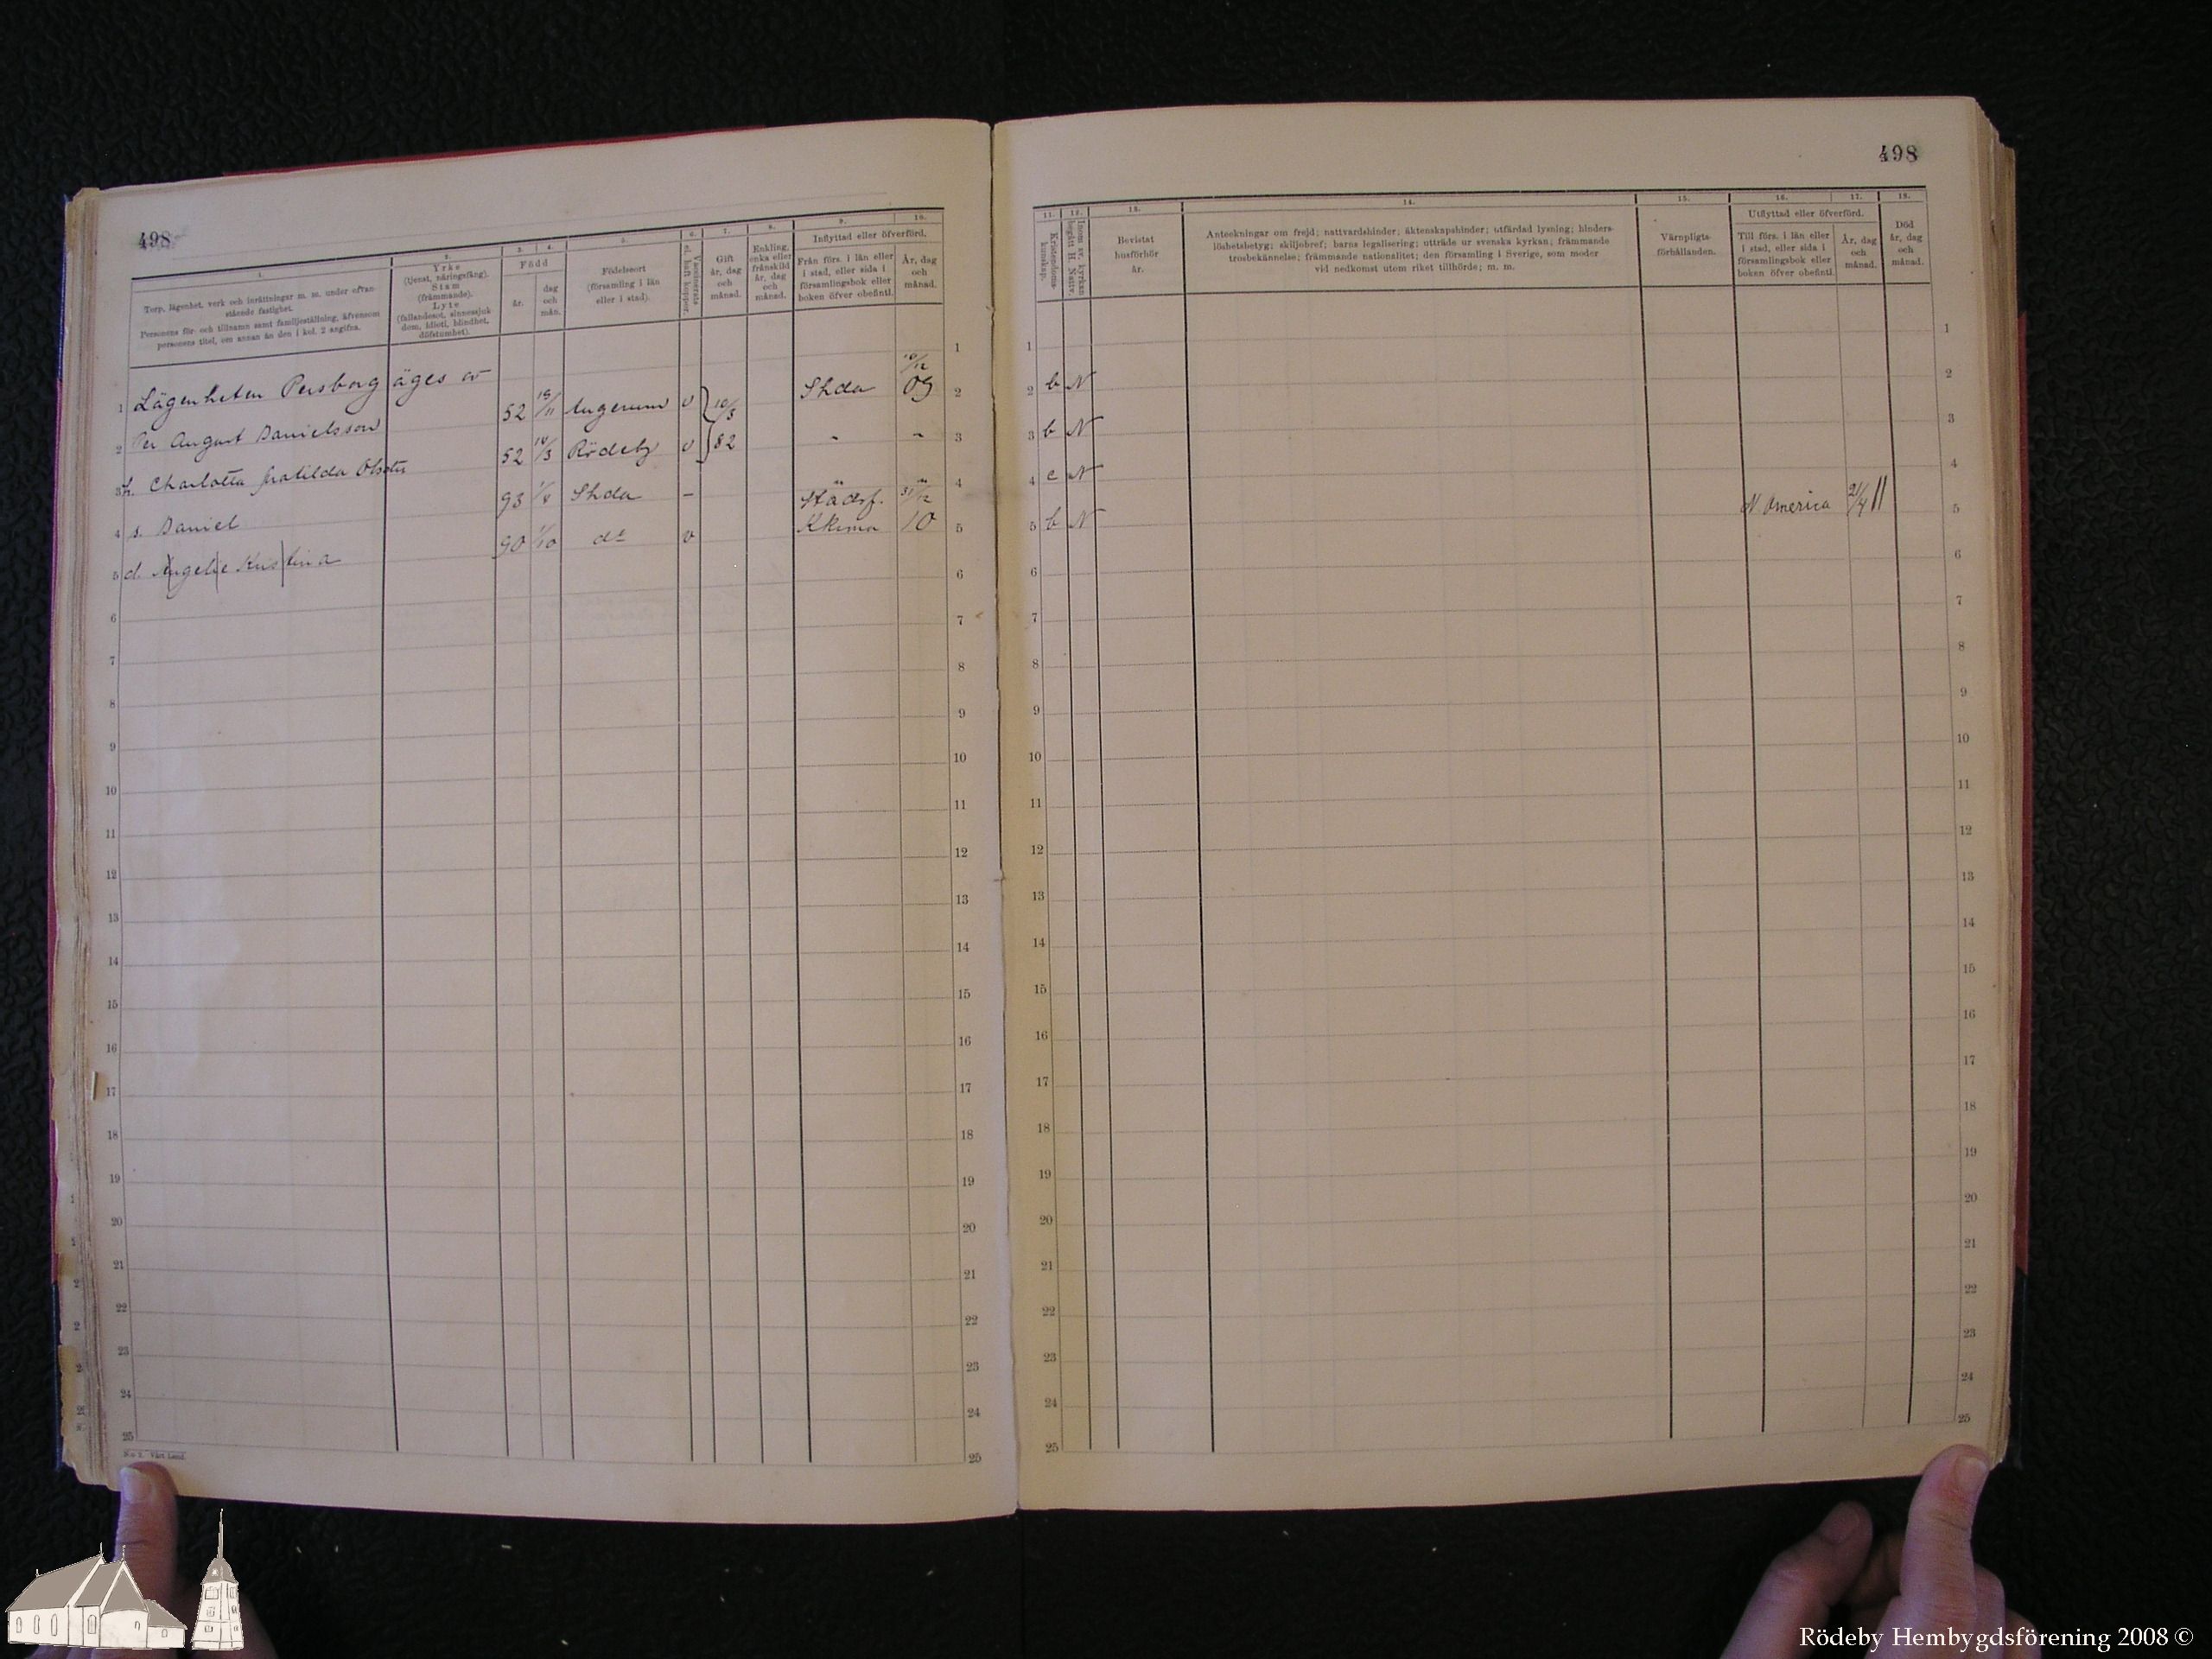 498
1. 2. 3. 4. 5. 6. 7. 8. 9. 10.
Torp, lägenhet, verk och inrättningar m. m. under ofvan-
stående fastighet.
Personens för- och tillnamn samt familjeställning, äfvensom
personens titel, om annan än den i kol. 2 angifna.
Yrke
(tjenst, näringsfång).
Stam
(främmande).
Lyte
(fallandesot, sinnessjuk-
dom, idioti, blindhet,
döfstumhet).
Född
år.
dag
och
mån.
Födelseort
(församling i län
eller i stad).
Vaccinerats
el. haft koppor.
Gift
år, dag
och
månad.
Enkling,
enka eller
frånskild
år, dag
och
månad.
Inflyttad eller öfverförd.
Från förs. i län eller
i stad, eller sida i
församlingsbok eller
boken öfver obefintl.
År, dag
och
månad.
1 Lägenheten Persborg äges av
2 Per August Danielsson 52 19/11 Augerum v 10/3 Shda 10/12 09
3 h. Charlotta Matilda Olsdtr 52 10/3 Rödeby v 82 - -
4 s. Daniel 93 1/8 Shda - " "
5 d. Angelie Kristina 90 1/10 do v Städsf. Kkrona 31/12 10
6
7
8
9
10
11
12
13
14
15
16
17
18
19
20
21
22
23
24
25
N:o 2. Vårt Land.
498
11. 12. 13. 14. 15. 16. 17. 18.
Kristendoms-
kunskap.
Inom sv. kyrkan
begått H. Nattv.
Bevistat
husförhör
år.
Anteckningar om frejd; nattvardshinder; äktenskapshinder; utfärdad lysning; hinders-
löshetsbetyg; skiljobref; barns legalisering; utträde ur svenska kyrkan; främmande
trosbekännelse; främmande nationalitet; den församling i Sverige, som moder
vid nedkomst utom riket tillhörde; m. m.
Värnpligts-
förhållanden.
Utflyttad eller öfverförd.
Till förs. i län eller
i stad, eller sida i
församlingsbok eller
boken öfver obefintl.
År, dag
och
månad.
Död
år, dag
och
månad.
1
2 b N
3 b N
4 c N
5 b N N America 21/4 11
6
7
8
9
10
11
12
13
14
15
16
17
18
19
20
21
22
23
24
25
Rödeby Hembygdsförening 2008 ©